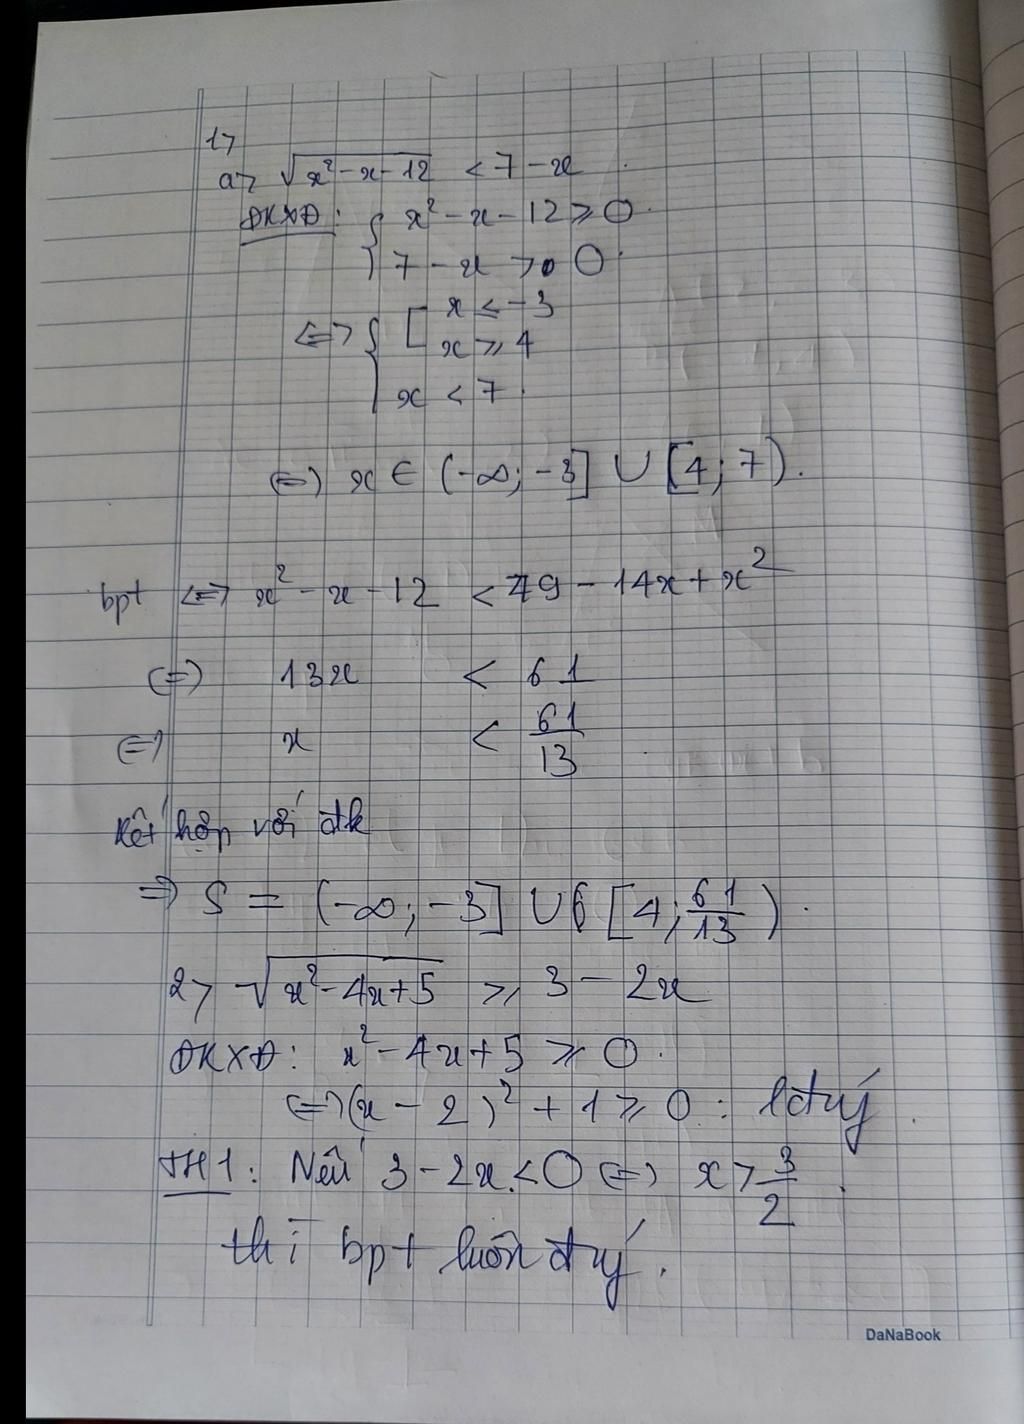 1>
a> √(x² - x - 12) < 7 - x
ĐKXĐ: { x² - x - 12 ⩾ 0.
7 - x > 0.
<=> { [ x ⩽ -3
x ⩾ 4
x < 7.
<=> x ∈ (-∞; -3] ∪ [4; 7).
bpt <=> x² - x - 12 < 49 - 14x + x²
<=> 13x < 61
<=> x < 61/13
Kết hợp với đk
=> S = (-∞; -3] ∪ [4; 61/13).
2> √(x² - 4x + 5) ⩾ 3 - 2x
ĐKXĐ: x² - 4x + 5 ⩾ 0.
<=> (x - 2)² + 1 ⩾ 0 : lđúg.
TH1: Nếu 3 - 2x < 0 <=> x > 3/2.
thì bpt luôn đúg.
DaNaBook